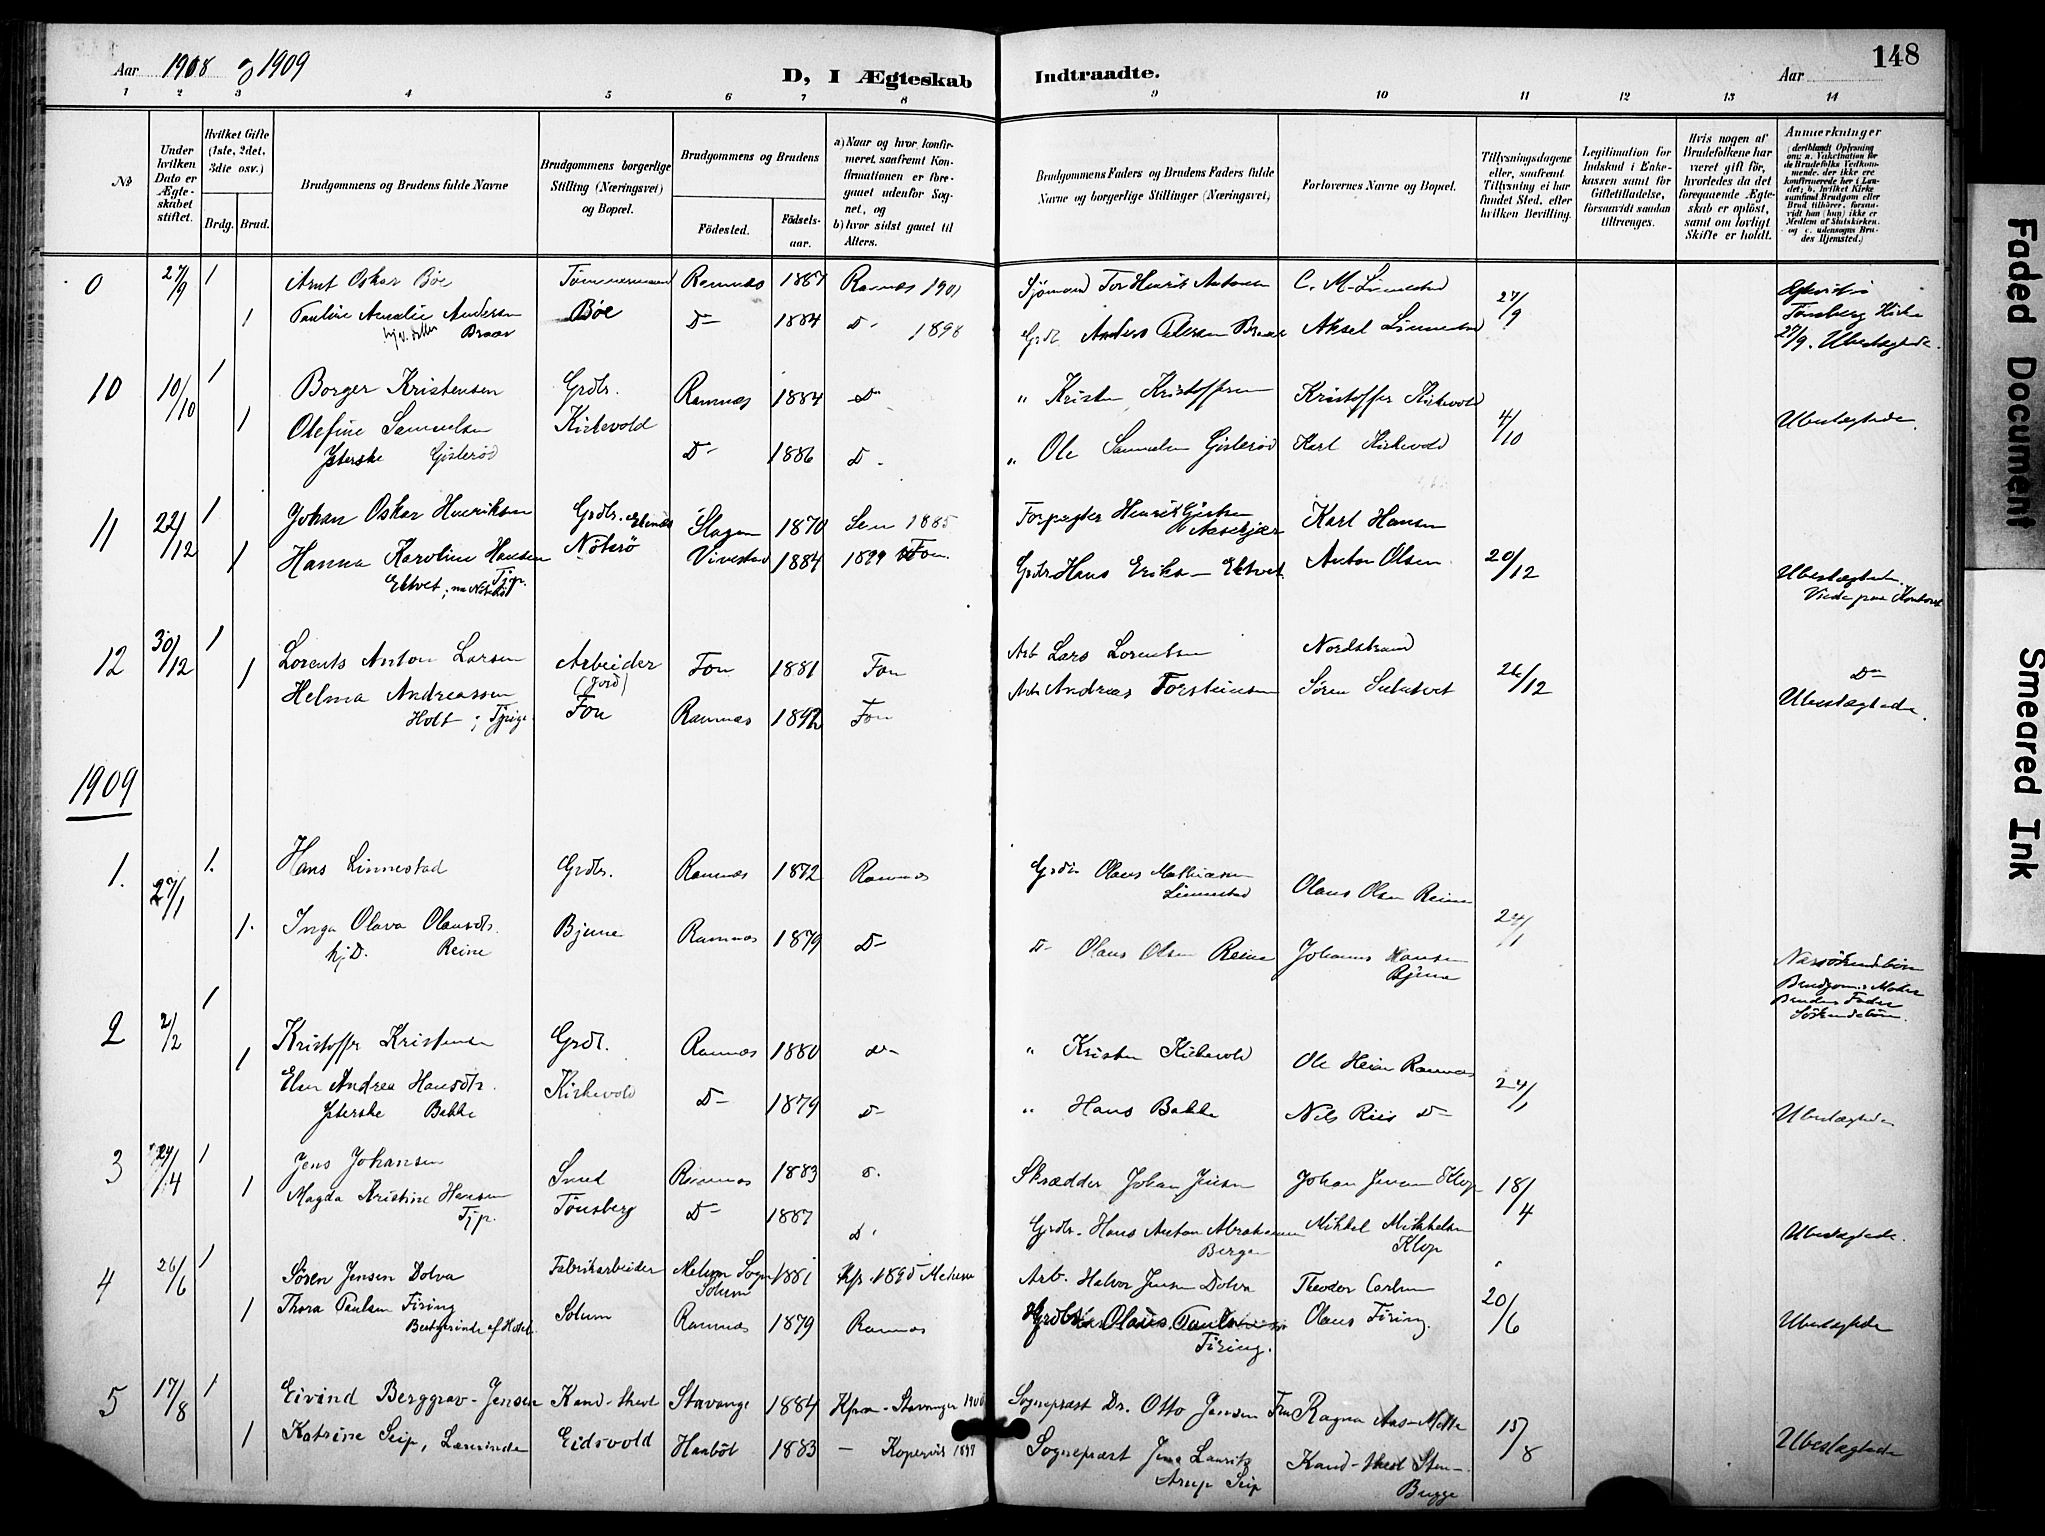 Aar 1908 og 1909
D, I Ægteskab Indtraadte.
Aar
148
1 2 3 4 5 6 7 8 9 10 11 12 13 14
No
Under hvilken Dato er Ægteskabet stiftet.
Hvilket Gifte (1ste, 2det, 3die osv.)
Brdg. Brud.
Brudgommens og Brudens fulde Navne
Brudgommens borgerlige Stilling (Næringsvei) og Bopæl.
Brudgommens og Brudens
Födested. Födsels-aar.
a) Naar og hvor konfirmeret, saafremt Konfirmationen er foregaaet udenfor Sognet, og
b) hvor sidst gaaet til Alters.
Brudgommens Faders og Brudens Faders fulde Navne og borgerlige Stillinger (Næringsvei)
Forlovernes Navne og Bopæl.
Tillysningsdagene eller, saafremt Tillysning ei har fundet Sted, efter hvilken Bevilling.
Legitimation for Indskud i Enkekassen samt for Giftetilladelse, forsaavidt saadan tiltrænges.
Hvis nogen af Brudefolkene har været gift för, hvorledes da det foregaaende Ægteskab er oplöst, samt om lovligt Skifte er holdt.
Anmerkninger (deriblandt Oplysning om: a. Vaksination for de Brudefolks Vedkommende, der ikke ere konfirmerede her i Landet; b. hvilket Kirkesamfund Brudgom eller Brud tilhörer, forsaavidt han (hun) ikke er Medlem af Statskirken, og c. udensogns Brudes Hjemsted.)
0 27/9 1 Arnt Oskar Bøe Tømmermand Ramnæs Ramnæs 1901 Sjømand Tor Henrik Antonsen C. M. Linnestad 27/9
1 Pauline Amalie Andersen Bøe D- 1884 D- 1898 Grdbr. Anders Petersen Braar Aksel Linnestad Tønsberg Kirke
Braar 27/9. Ubeslægtede.
10 10/10 1 Borger Kristensen Grdbr. Ramnæs 1884 D- " Kristen Kristoffersen Kristoffer Kirkevold 4/10 Ubeslægtede.
1 Olefine Samuelsen Kirkevold D- 1886 D- " Ole Samuelsen Gislerød Karl Kirkevold
Ysterske Gislerød
11 22/12 1 Johan Oskar Henriksen Grdbr. Slagen 1870 Sem 1885 Forpagter Henrik Karl Hansen
1 Hanna Karoline Hansen Nøterø Vivestad 1884 1899 Fon. Grdbr. Hans Eriksen Ektvet Anton Olsen 20/12 Ubeslægtede.
Ektvet; Tjp. Viede paa Kontoret
12 30/12 1 Lorents Anton Larsen Arbeider (Jord) Fon 1881 Fon Arb. Lars Lorentsen Nordstrand 26/12 D-
1 Helma Andreassen Fon Ramnæs Fon Arb. Andreas Torsteinsen Søren Ubeslægtede.
Holt; Tjpige
1909
1. 27/1 1. Hans Linnestad Grdbr. Ramnæs 1872 Ramnæs Grdbr. Olaus Mathiasen Linnestad Olaus Olsen Reine 24/1
1. Inga Olava Olausdtr. Bjune Ramnæs 1879 D- D- Olaus Olsen Reine Johannes Hansen Bjune
hj. D. Reine
Næssøskendebørn
Brudgoms Moder
Brudens Fader
Søskendebørn.
2 2/2 1 Kristoffer Kristensen Grdbr. Ramnæs 1880 D- " Kristen Kirkevold Ole Heian Ramnæs 24/1
1 Elen Andrea Hansdtr. Kirkevold D- 1879 D- " Hans Bakke Nils Riis D- Ubeslægtede
Ysterske Bakke
3 24/4 1 Jens Johansen Smed Ramnæs 1883 D. Skrædder Johan Jensen Johan Jensen Klop 18/4
1 Magda Kristine Hansen Tønsberg D- 1887 D- Grdbr. Hans Anton Abrahamsen Berge Mikkel Mikkelsen Klop Ubeslægtede.
Tjp.
4 26/6 1 Søren Jensen Dolva Fabrikarbeider Melum Sogn Solum 1881 Kfr. 1895 Melum Arb. Halvor Jensen Dolva Theodor Carlsen 20/6
1 Thora Paulsen Firing Solum Ramnæs 1879 Ramnæs Grdbr. Olaus Firing. Olaus Firing. Ubeslægtede
Bestyrerinde af Hotel
5 17/8 1 Eivind Berggrav-Jensen Kand. theol Stavanger 1884 Kfrm. Stavanger 1900 Sogneprest Dr. Otto Jensen Fru Ragna Aas-Mette 15/8
1 Katrine Seip, Lærerinde Eidsvold Haabøl 1883 - Kopervik 1897 Sogneprest Jens Lauritz Arup Seip Kand. theol Sten Bugge Ubeslægtede
Faded Document
Smeared Ink